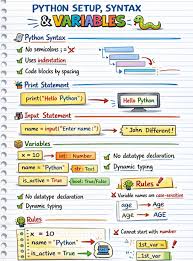 PYTHON SETUP, SYNTAX
& VARIABLES
Python Syntax
No semicolons ;
Uses indentation
Code blocks by spacing
Print Statement
print("Hello Python")
Hello Python
Input Statement
name = input("Enter name: ")
"John Different!"
Variables
x = 10
int: Number
No datatype declaration
name = "Python"
str: Text
Dynamic typing
is_active = True
bool: True/False
No datatype declaration
Dynamic typing
Rules
Variable names are case-sensitive
age
AGE
Age
AGE
Rules
x = 10
name = "Python"
is_active = True
Cannot start with number
1st_var =
1st_var =